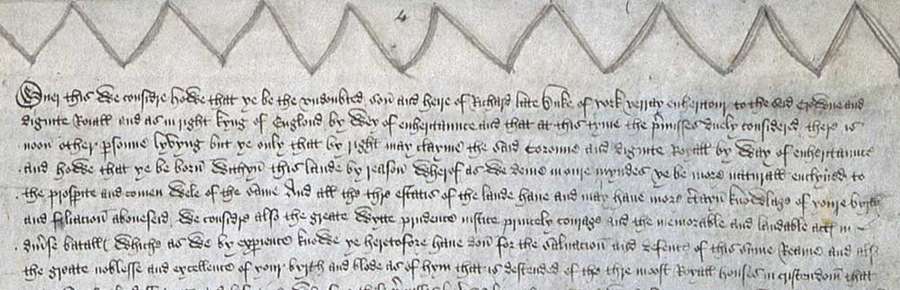 4
Over this we considre howe that ye be the undoubted son and heire of Richard late Duke of York verray enheritour to the said Crowne and
dignite Roiall and as in right kyng of Englond by wey of enheritaunce and that at this tyme the premisses duely considered there is
noon other persoune lyvyng but ye only that by right may clayme the said Coronne and dignite Roiall by wey of enheritaunce
and howe that ye be born withyn this lande by reason wherof as we deme in oure myndes ye be more naturally enclyned to
the prosperite and comen wele of the same And all the thre estatis of the lande have and may have more certayn knowlage of youre byrth
and filiacioun aboveseid We considre also the greate wytte prudence justice princely courage and the memorable and laudable actes in
diverse batalls whiche as we by experience knowe ye heretofore have don for the salvacion and defence of this same Reame and also
the greate noblesse and excellence of your byrth and blode as of hym that is descended of the thre moost Royall houses in cristendom that